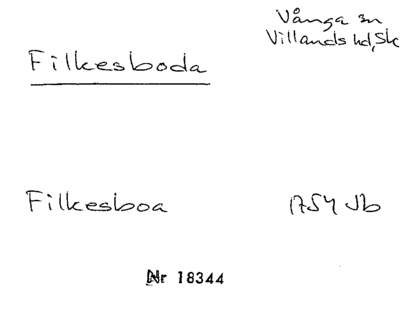 Vånga sn
Villands hd, Sk
Filkesboda
Filkesboa 1754 Jb
Nr 18344